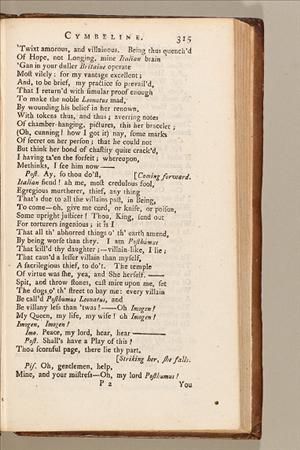 CYMBELINE. 315
'Twixt amorous, and villainous. Being thus quench'd
Of Hope, not Longing, mine Italian brain
'Gan in your duller Britaine operate
Most vilely: for my vantage excellent;
And, to be brief, my practice so prevail'd,
That I return'd with simular proof enough
To make the noble Leonatus mad,
By wounding his belief in her renown,
With tokens thus, and thus; averring notes
Of chamber-hanging, pictures, this her bracelet;
(Oh, cunning! how I got it) nay, some marks
Of secret on her person; that he could not
But think her bond of chastity quite crack'd,
I having ta'en the forfeit; whereupon,
Methinks, I see him now——
Post. Ay, so thou do'st, [Coming forward.
Italian fiend! ah me, most credulous fool,
Egregious murtherer, thief, any thing
That's due to all the villains past, in Being,
To come—oh, give me cord, or knife, or poison,
Some upright justicer! Thou, King, send out
For torturers ingenious; it is I
That all th' abhorred things o' th' earth amend,
By being worse than they. I am Posthumus
That kill'd thy daughter;—villain-like, I lie;
That caus'd a lesser villain than myself,
A sacrilegious thief, to do't. The temple
Of virtue was she, yea, and She herself.——
Spit, and throw stones, cast mire upon me, set
The dogs o' th' street to bay me: every villain
Be call'd Posthumus Leonatus, and
Be villany less than 'twas!——Oh Imogen!
My Queen, my life, my wife! oh Imogen!
Imogen, Imogen!
Imo. Peace, my lord, hear, hear———
Post. Shall's have a Play of this?
Thou scornful page, there lie thy part.
[Striking her, she falls.
Pis. Oh, gentlemen, help,
Mine, and your mistress—Oh, my lord Posthumus!
P 2 You